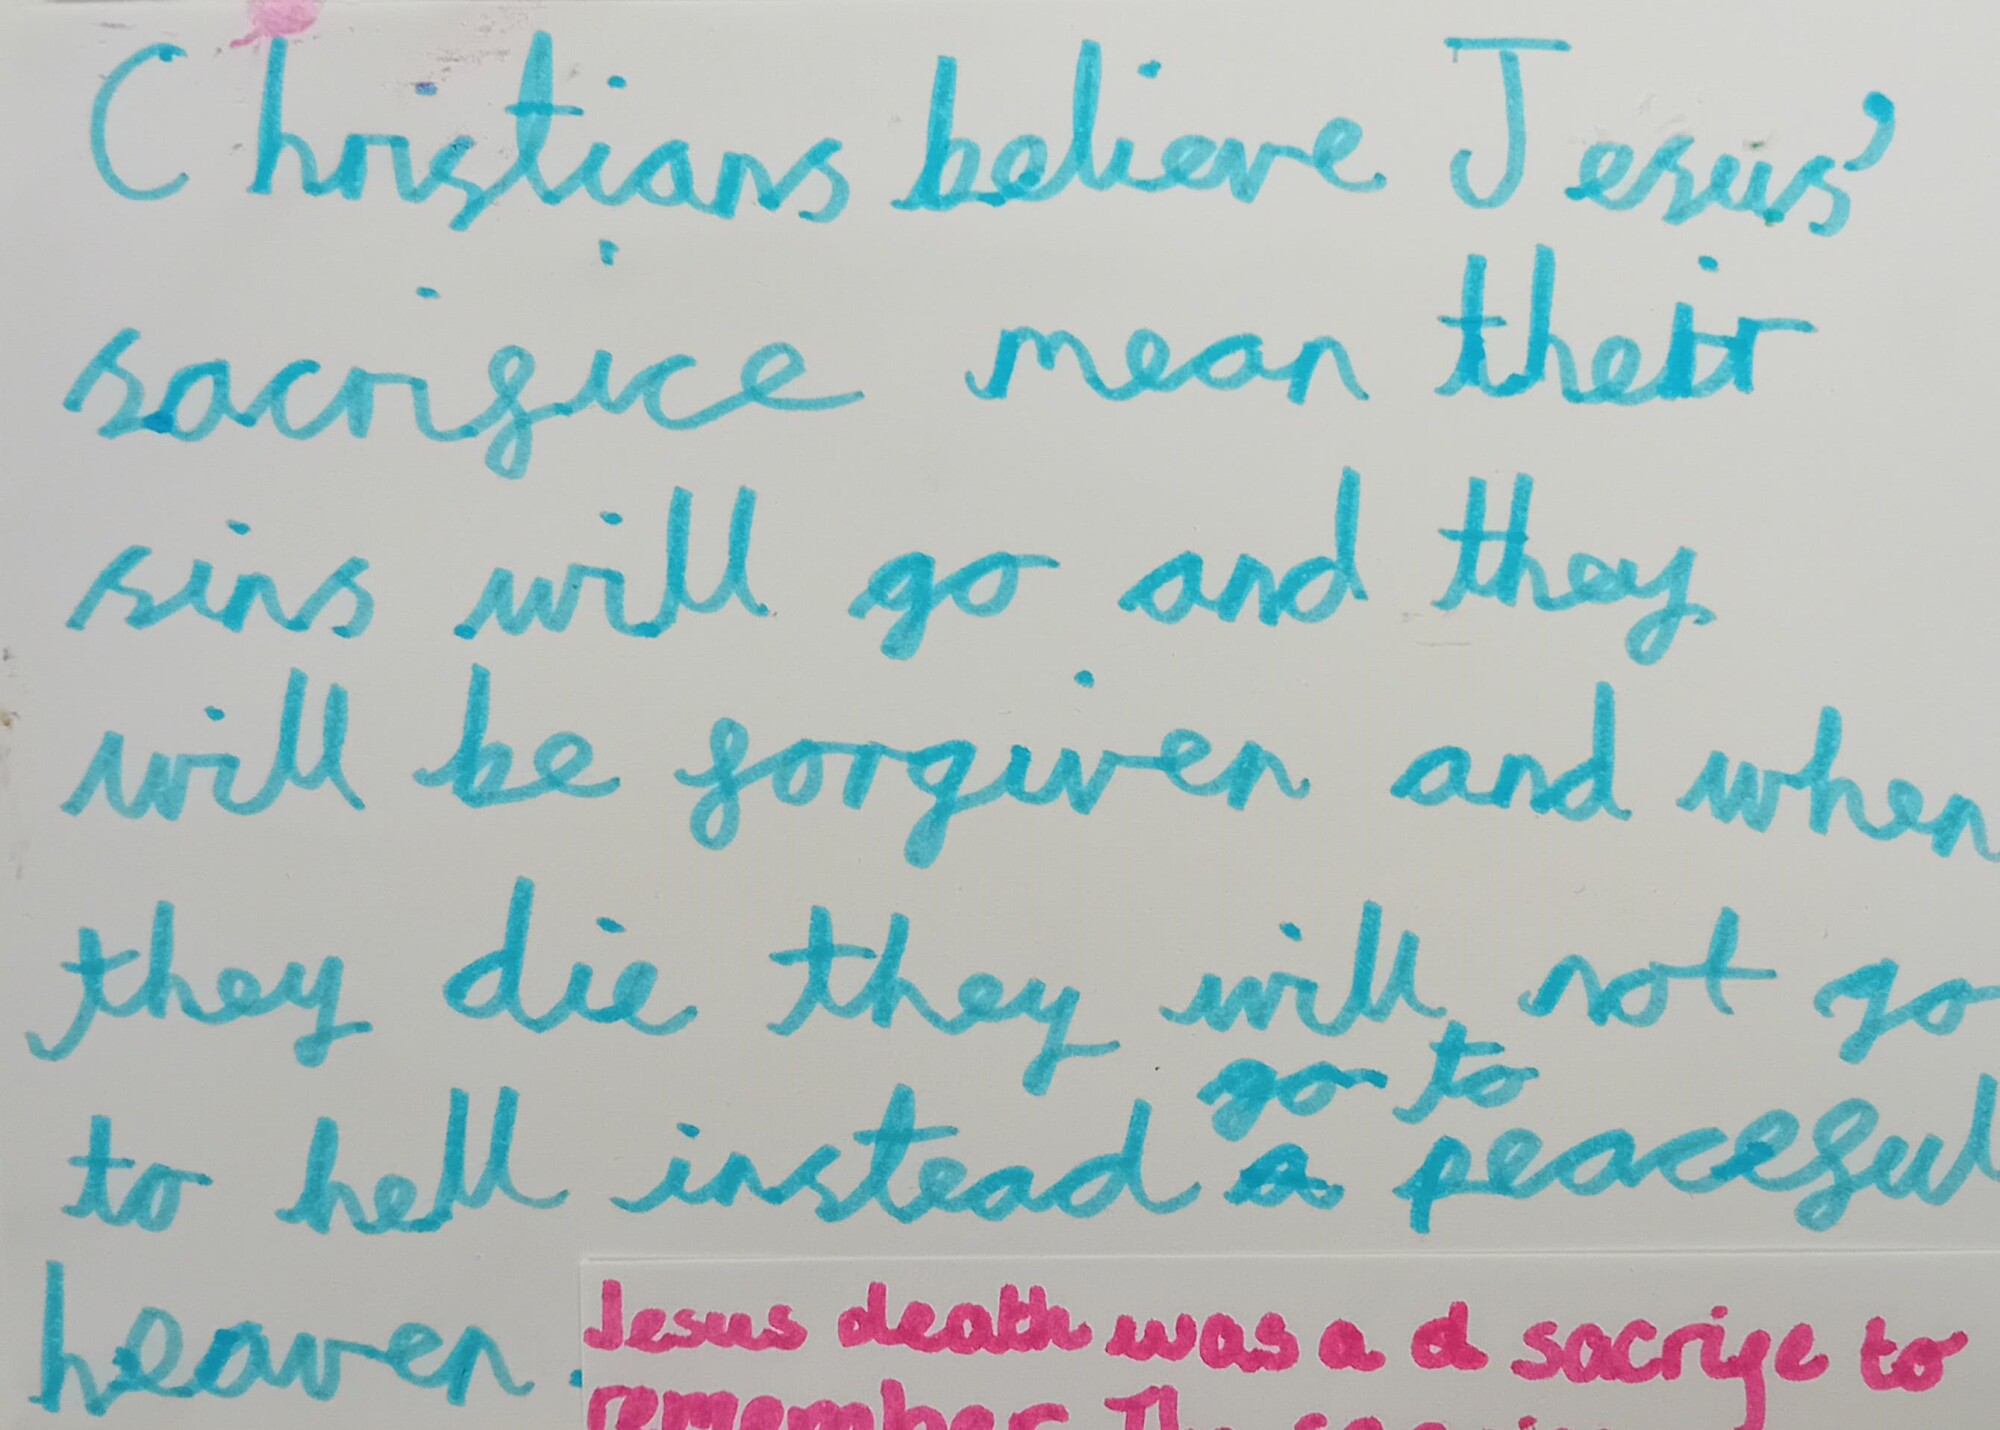 Christians believe Jesus'
sacrifice mean their
sins will go and they
will be forgiven and when
they die they will not go
go to
to hell instead a peaceful
heaven.
Jesus death was a d sacrife to
remember The